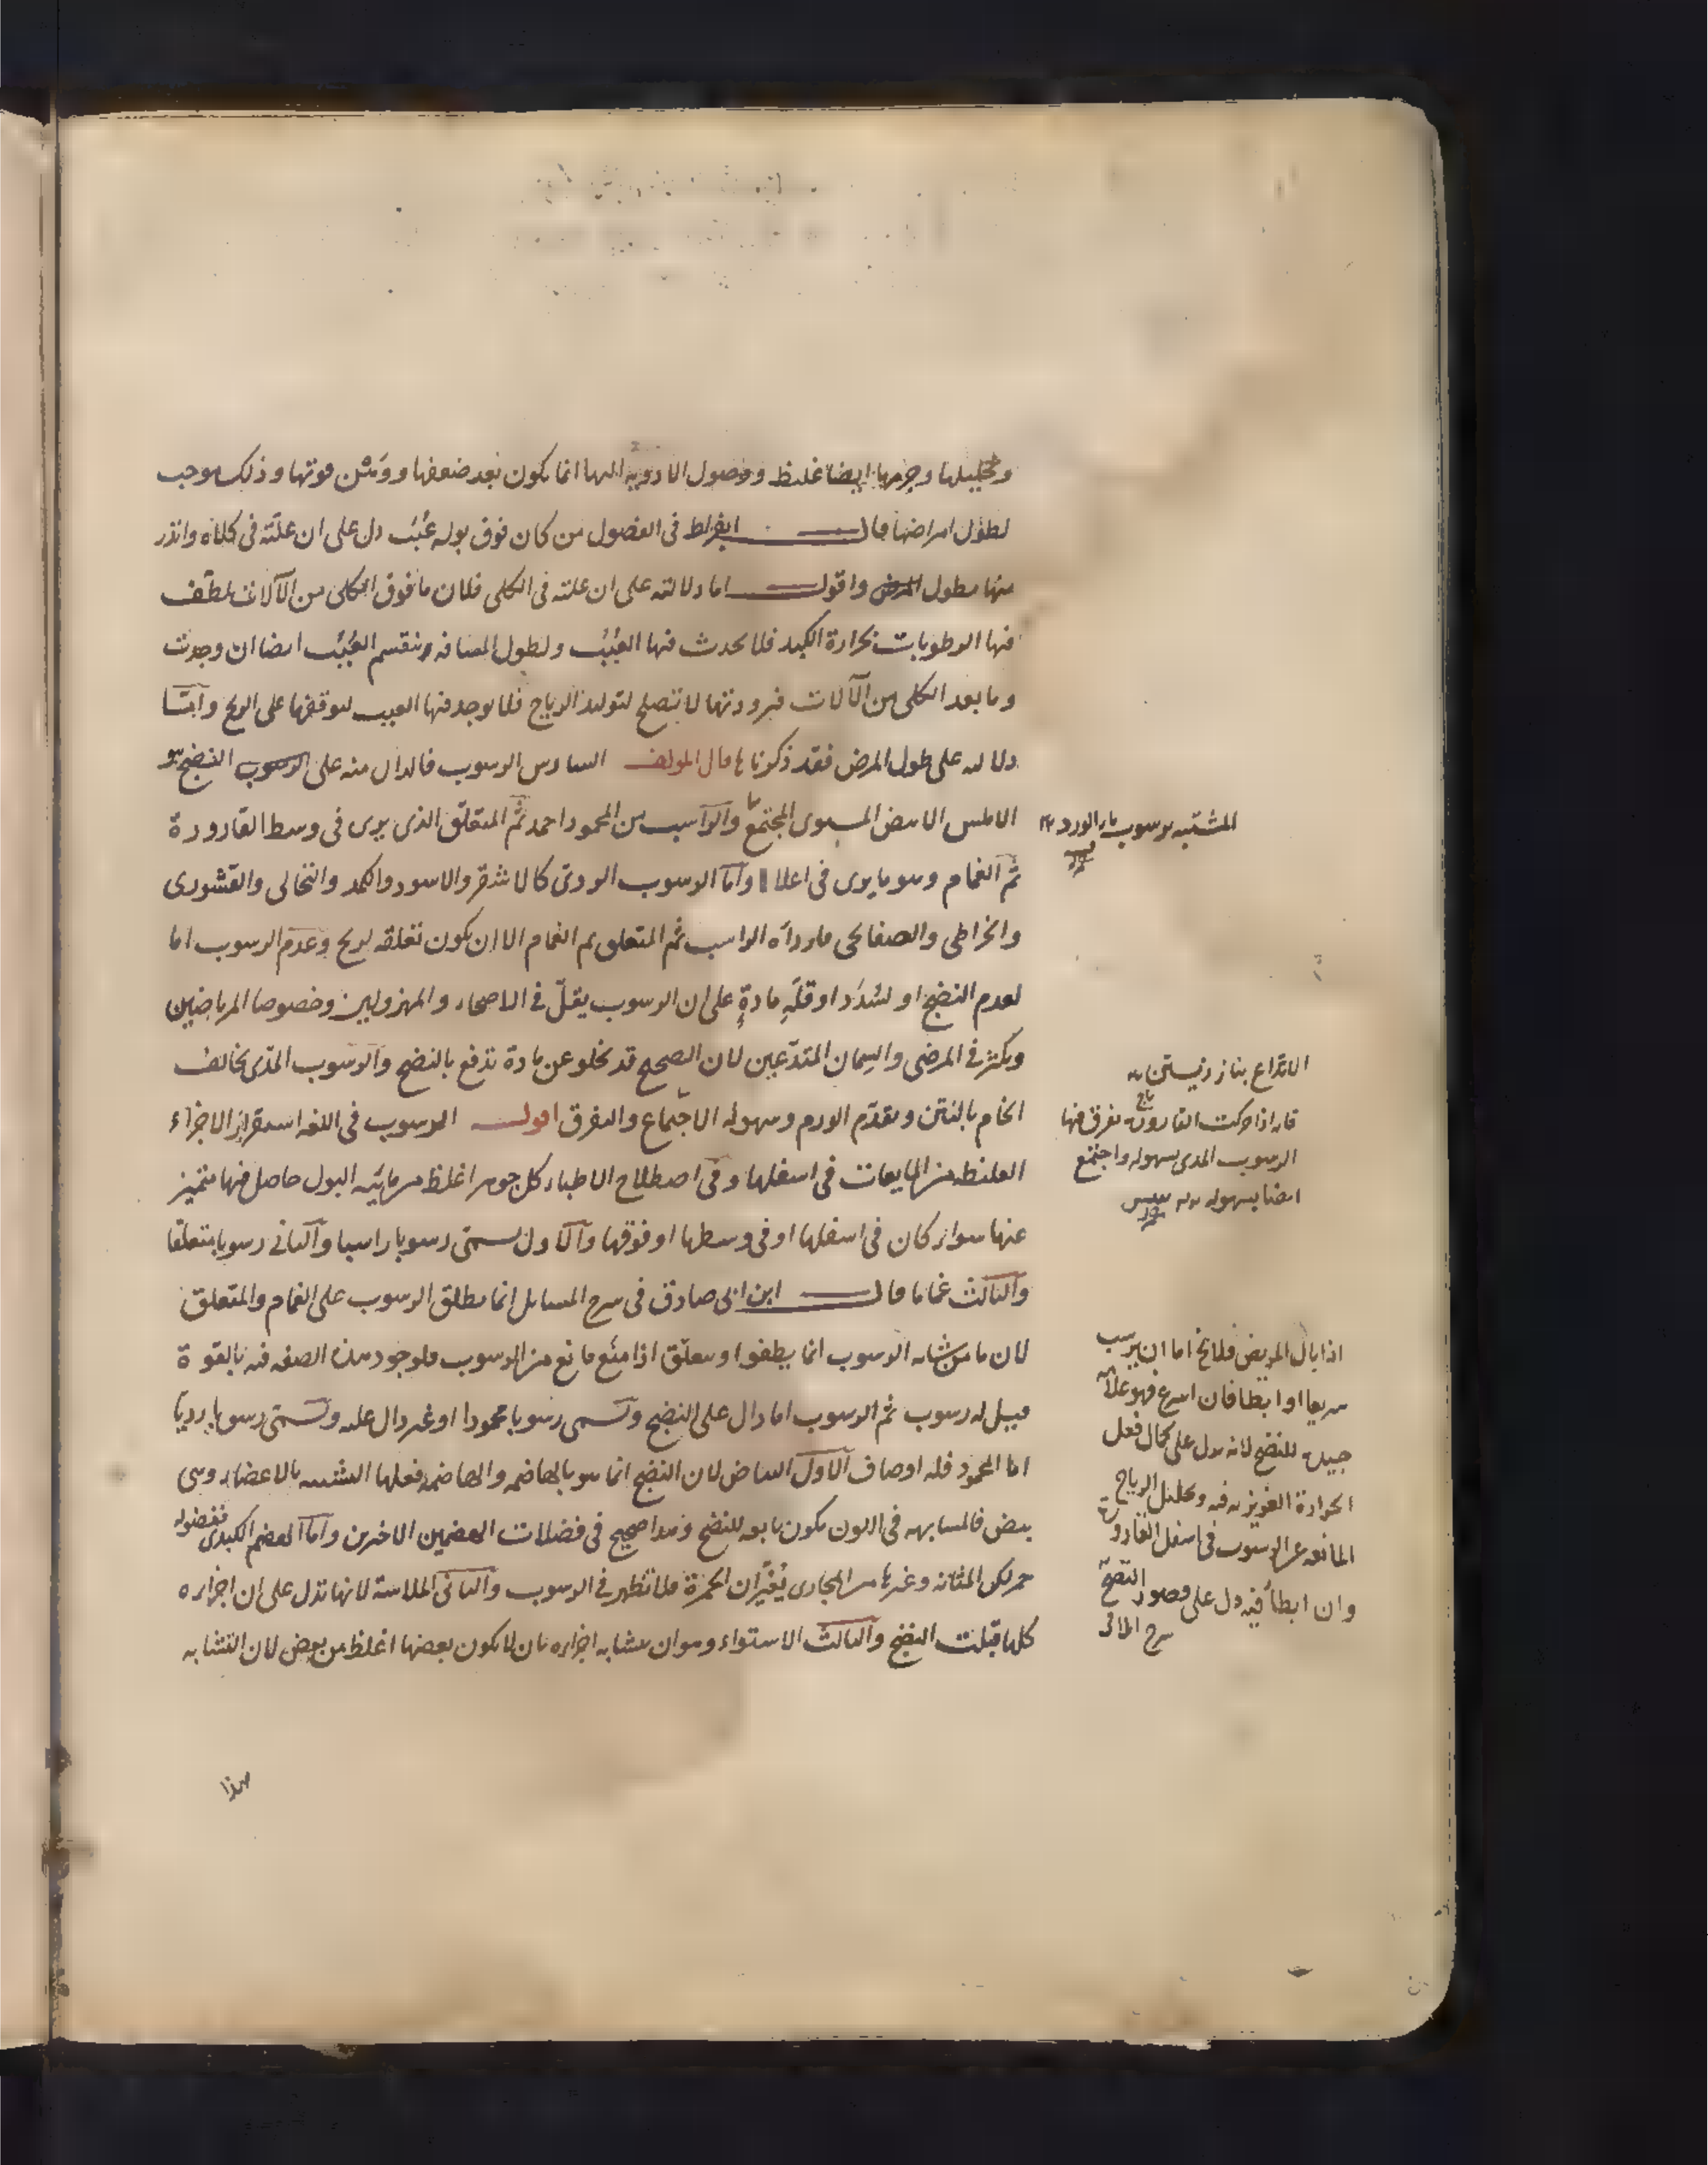 وتحليلها وجرمها ايضا غليظ ووصول الادوية اليها انما يكون بعد ضعفها ووهن قوتها وذلك موجب
لطول امراضها قال ابقراط فى الفصول من كان فوق بوله عُبَبٌ دل على ان علّته فى كلاه وانذر
منها بطول المرض واقول اما دلالته على ان علته فى الكلى فلان ما فوق الكلى من الآلات تلطّف
فيها الرطوبات بحرارة الكبد فلا يحدث فيها العُبَبُ ولطول المسافة ينقسم العُبَبُ ايضا ان وجدت
وما بعد الكلى من الآلات فبرودتها لا تصلح لتوليد الرياح فلا يوجد فيها العبب لتوقفها على الريح وامّا
دلالته على طول المرض فقد ذكرناها قال المولف السادس الرسوب فالدال منه على الرسوب النضج هو
الاملس الابيض المستوى المجتمع والراسب من المحمود احمد ثم المتعلّق الذى يرى فى وسط القارورة
ثم الغمام وهو ما يرى فى اعلاا وامّا الرسوب الردىّ كالاشقر والاسود والكمد والنخالى والقشورى
والخراطى والصفايحى فاردأه الراسب ثم المتعلق ثم الغمام الا ان يكون تعلقه لريح وعدم الرسوب اما
لعدم النضج او لسُدَد او قلّةِ مادةٍ على ان الرسوب يقلّ فى الاصحاء والمهزولين وخصوصا المرتاضين
ويكثر فى المرضى والسِمان المتدّعين لان الصحيح قد يخلو عن مادة تدفع بالنضج والرسوب المدّى يخالف
الخام بالنتن وتقدّم الورم وسهولة الاجتماع والتفرق اقول الرسوب فى اللغة استقرار الاجزاء
الغليظة من المايعات فى اسفلها وفى اصطلاح الاطباء كل جوهر اغلظ من مايّية البول حاصل فيها متميز
عنها سواء كان فى اسفلها او فى وسطها او فوقها والاول يسمّى رسوبا راسبا والثانى رسوبا متعلقا
والثالث غماما قال ابن ابى صادق فى شرح المسايل انما يطلق الرسوب على الغمام والمتعلق
لان ما من شانه الرسوب انما يطفوا ويتعلّق اذا منع مانع من الرسوب فلوجود هذه الصفة فيه بالقوة
قيل له رسوب ثم الرسوب اما دال على النضج ويسمى رسوبا محمودا او غير دال عليه ويسمّى رسوبا رديّا
اما المحمود فله اوصاف الاول البياض لان النضج انما هو بالهاضمة والهاضمة فعلها التشبيه بالاعضاء وهى
بيض فالمشابهة فى اللون يكون تابعه للنضج وهذا صحيح فى فضلات الهضمين الاخرين وامّا الهضم الكبدى ففضوله
حمر لكن المثانة وغيرها من المجارى يُغيّران الحمرة فلا تظهر فى الرسوب والثانى الملاسة لانها تدل على ان اجزاءه
كلها قبلت النضج والثالث الاستواء وهو ان يتشابه اجزاءه بان لا يكون بعضها اغلظ من بعض لان التشابه
هذا
المشتبه برسوب باد الورد
الاتداع بناز زيستن
فانه اذا حركت القارورة تفرق فيها
الرسوب المدى بسهولة واجتمع
ايضا بسهولة
اذا بال المريض فلا يخ اما ان يرسب
سريعا او ابطا فان اسرع فهو علامة
جيدة للنضج لانه يدل على كمال فعل
الحرارة الغريزية فيه وتحليل الرياح
المانعة عن الرسوب فى اسفل القارورة
وان ابطأ فيه دل على قصور النضج
شرح